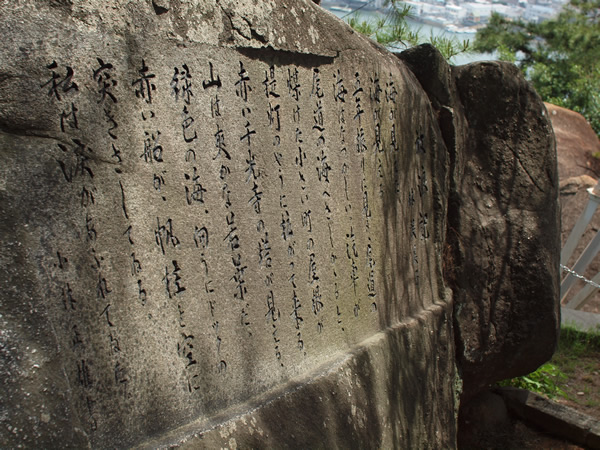 放浪記
林芙美子
海が見えた
海が見える
五年振りに見る尾道の
海はなつかしい、汽車が
尾道の海へさしかかると、
煤けた小さい町の屋根が
提灯のやうに拡がつて来る
赤い千光寺の塔が見える、
山は爽かな若葉だ、
緑色の海、向うにドックの
赤い船が、帆柱を空に
突きさしてゐる。
私は涙があふれてゐた
小林正雄書